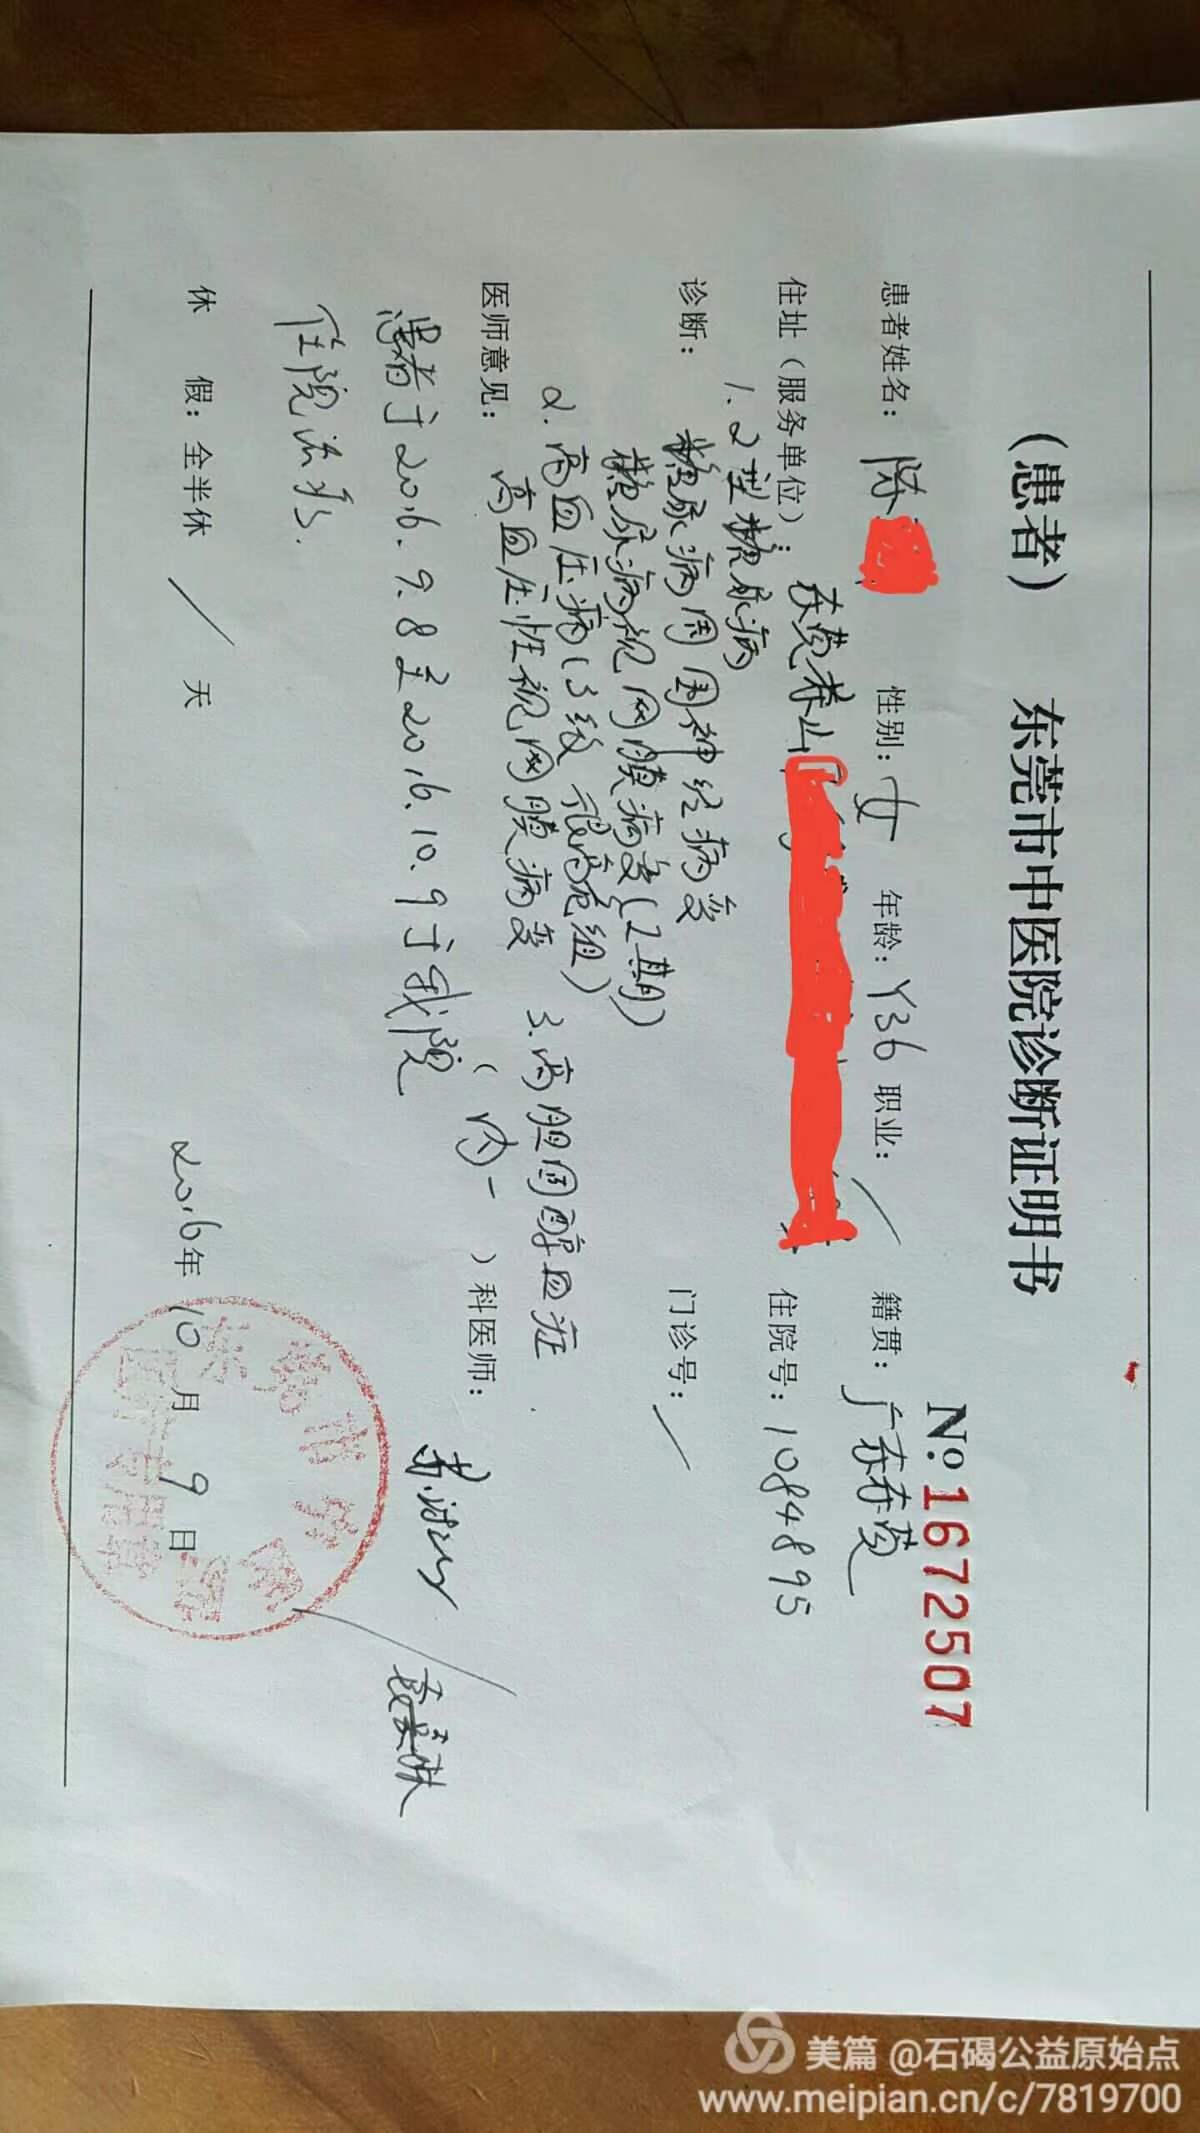 (患者) 东莞市中医院诊断证明书
№.1672507
患者姓名: 陈 性别: 女 年龄: Y36 职业: / 籍贯: 广东东莞
住址(服务单位): 东莞茶山 住院号: 1084895
诊断: 门诊号: /
1. 2型糖尿病
糖尿病周围神经病变
糖尿病视网膜病变(2期)
2. 高血压病(3级 很高危组) 3. 高胆固醇血症
高血压性视网膜病变
医师意见: (内一)科医师:
患者于2016.9.8至2016.10.9于我院
住院治疗.
休 假: 全半休 / 天 2016年10月9日
美篇 @石碣公益原始点
www.meipian.cn/c/7819700